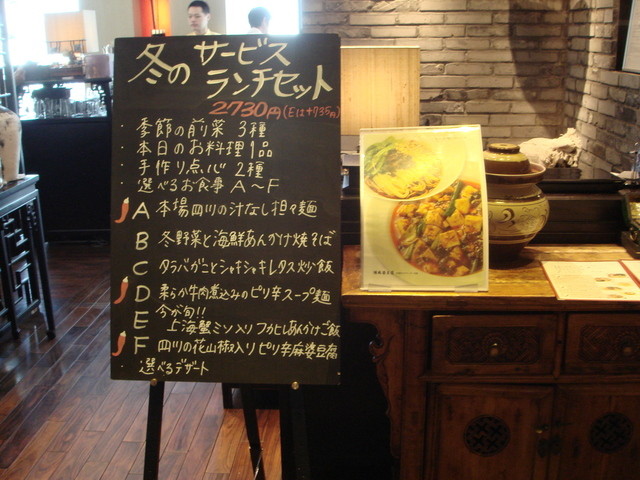 冬の サービス
ランチセット
2730円(Eは+735円)
・季節の前菜 3種
・本日のお料理1品
・手作り点心 2種
・選べるお食事 A〜F
A 本場四川の汁なし担々麺
B 冬野菜と海鮮あんかけ焼そば
C タラバがことシャキシャキレタス炒飯
D 柔らか牛肉煮込みのピリ辛スープ麺
E 今が旬!!
上海蟹ミソ入りフカヒレあんかけご飯
F 四川の花山椒入りピリ辛麻婆豆腐
・選べるデザート